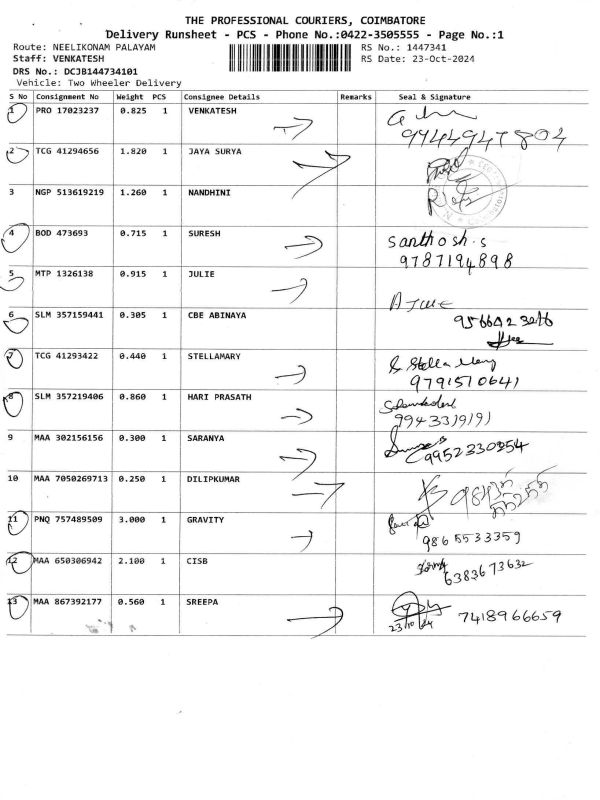 THE PROFESSIONAL COURIERS, COIMBATORE
Delivery Runsheet - PCS - Phone No.:0422-3505555 - Page No.:1
Route: NEELIKONAM PALAYAM RS No.: 1447341
Staff: VENKATESH RS Date: 23-Oct-2024
DRS No.: DCJB144734101
Vehicle: Two Wheeler Delivery
S No Consignment No Weight PCS Consignee Details Remarks Seal & Signature
1 PRO 17023237 0.825 1 VENKATESH
9944947804
2 TCG 41294656 1.820 1 JAYA SURYA
3 NGP 513619219 1.260 1 NANDHINI
4 BOD 473693 0.715 1 SURESH Santhosh.s
9787194898
5 MTP 1326138 0.915 1 JULIE
6 SLM 357159441 0.305 1 CBE ABINAYA
7 TCG 41293422 0.440 1 STELLAMARY Stella Mary
9791510641
8 SLM 357219406 0.860 1 HARI PRASATH
9943319191
9 MAA 302156156 0.300 1 SARANYA
9952330354
10 MAA 7050269713 0.250 1 DILIPKUMAR
11 PNQ 757489509 3.000 1 GRAVITY
9865533359
12 MAA 650306942 2.100 1 CISB
6383673632
13 MAA 867392177 0.560 1 SREEPA 7418966659
23/10/24